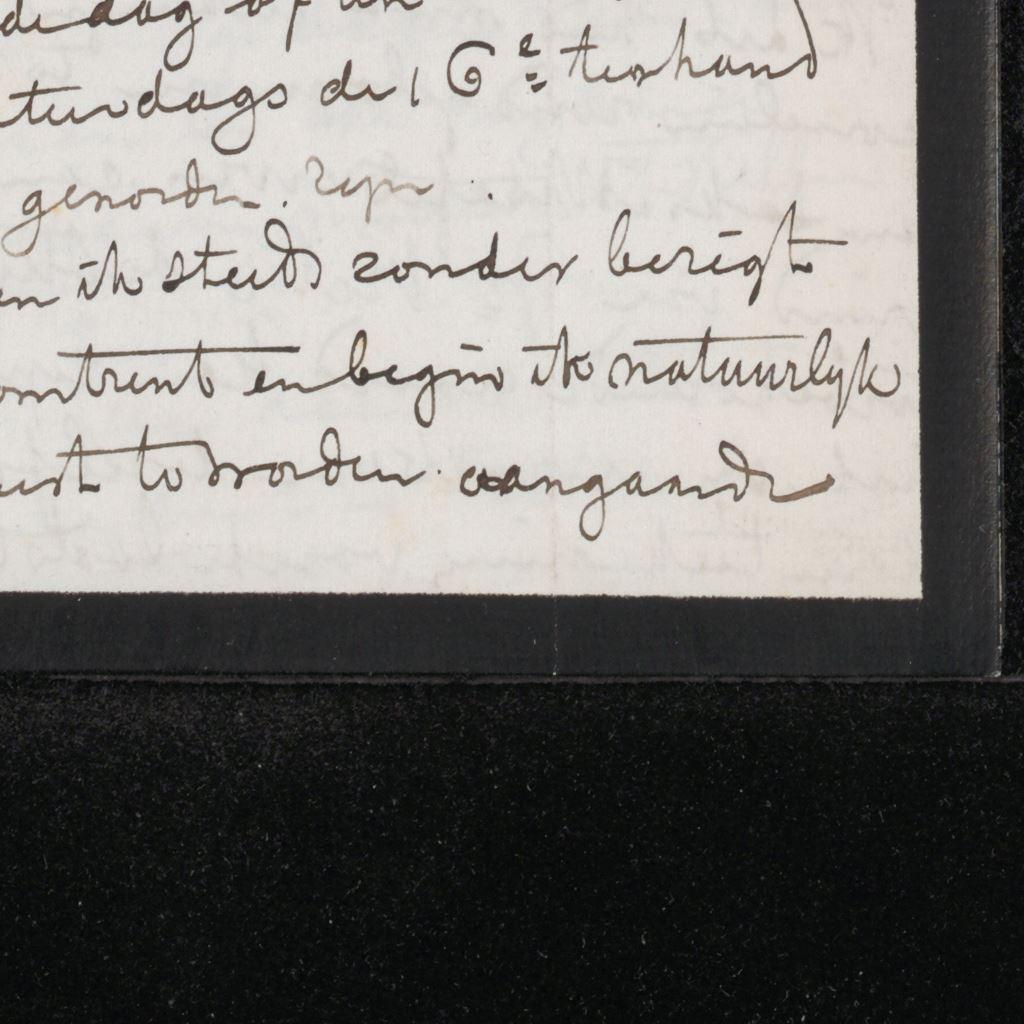 dedag of an
turdags de 16e terhand
geworden zijn.
en ik steeds zonder berigt
omtrent en begin ik natuurlyk
ust te worden aangaande